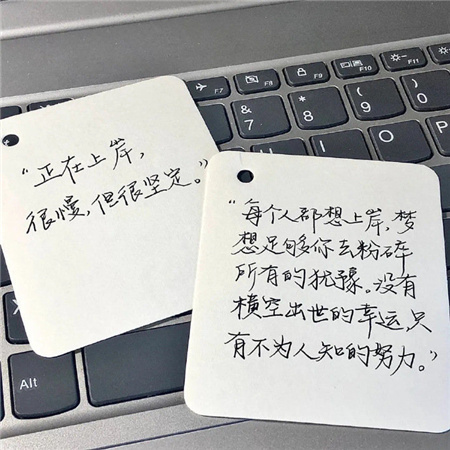 “正在上岸，
很慢，但很坚定。”
“每个人都想上岸，梦
想足够你去粉碎
所有的犹豫。没有
横空出世的幸运，只
有不为人知的努力。”
F7
F8
F9
F10
&
7
*
8
(
9
)
0
U
Alt